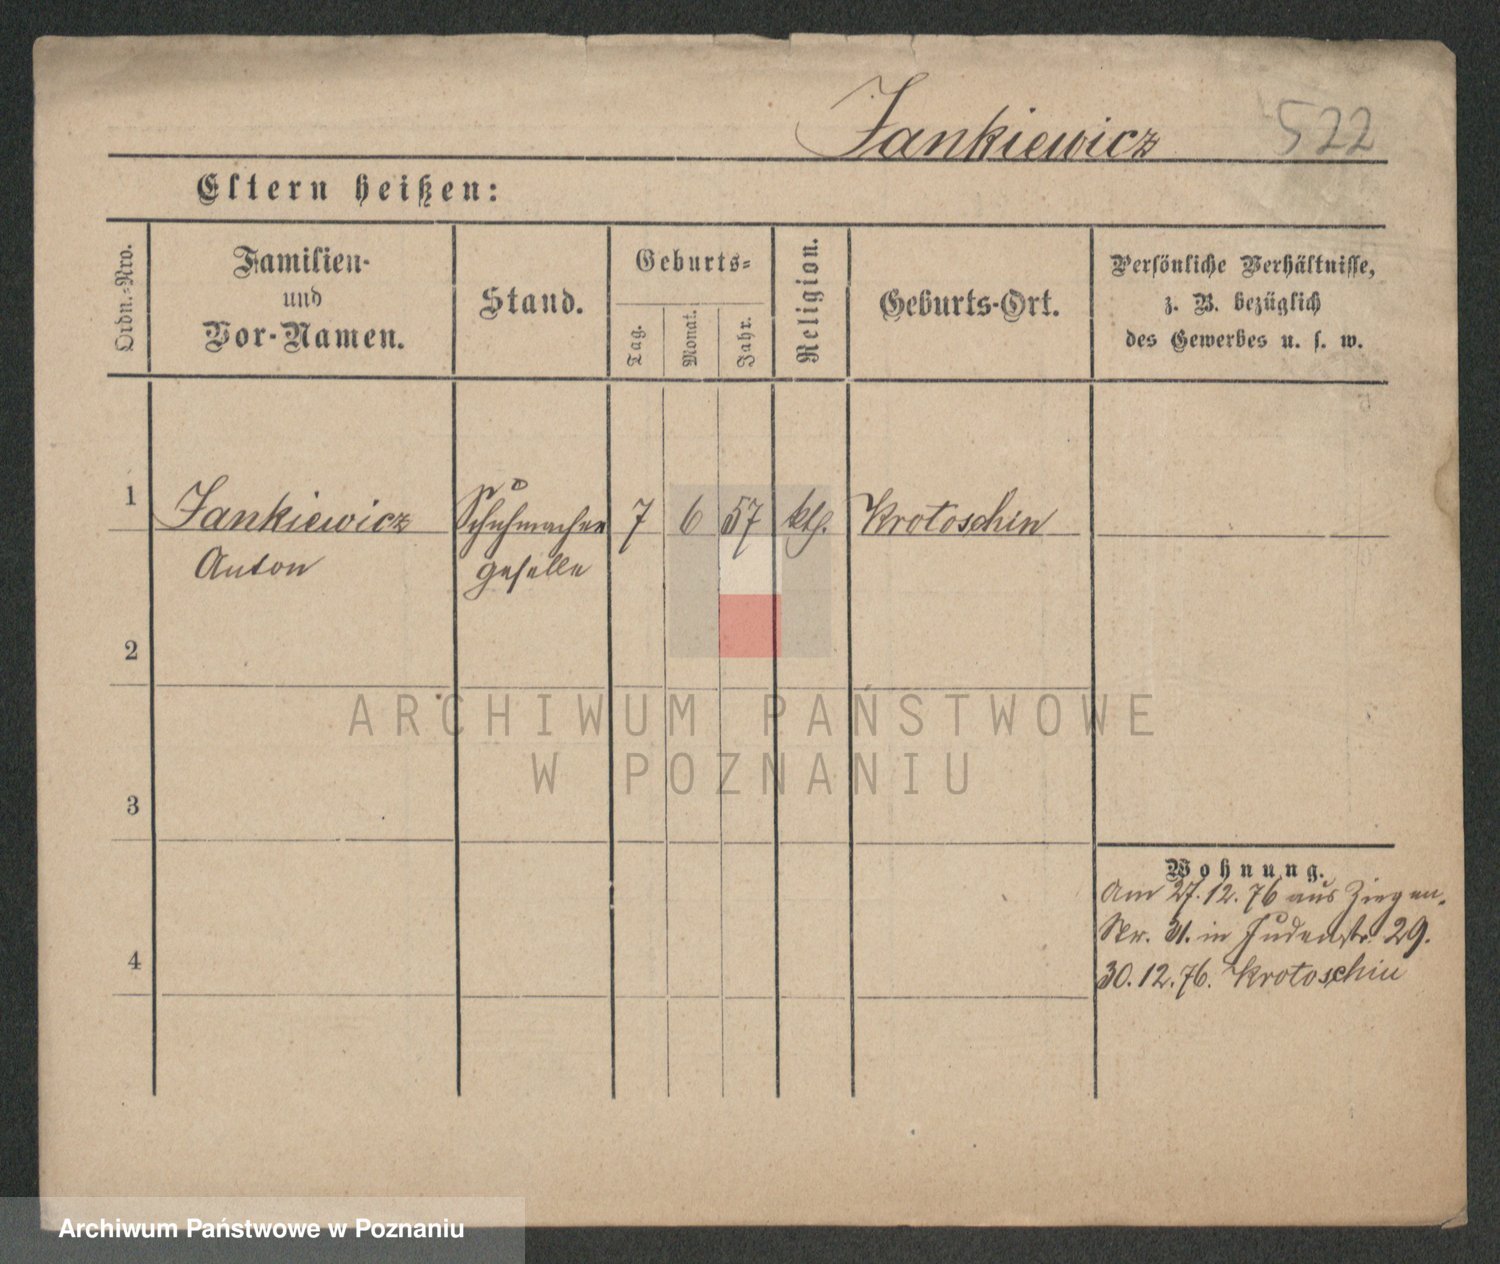 Jankiewicz 522
Eltern heißen:
Ordn.-Nro.
Familien-
und
Vor-Namen.
Stand.
Geburts-
Tag.
Monat.
Jahr.
Religion.
Geburts-Ort.
Persönliche Verhältnisse,
z. B. bezüglich
des Gewerbes u. s. w.
1 Jankiewicz Schuhmacher 7 6 57 ktl. Krotoschin
Anton geselle
2
3
4
Wohnung.
Am 27.12.76 aus Ziegen-
Str. 31. in Judenstr. 29.
30.12.76. Krotoschin
ARCHIWUM PAŃSTWOWE
W POZNANIU
Archiwum Państwowe w Poznaniu